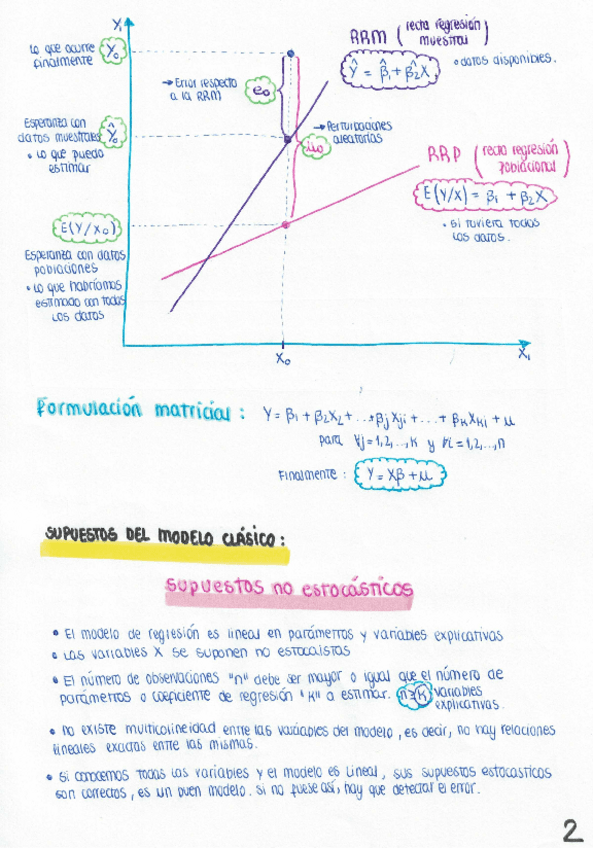 Y₁
Lo que ocurre finalmente
Y₀
RRM (recta regresión muestral)
Ŷ = β̂₁ + β̂₂X
• datos disponibles.
→ Error respecto a la RRM
e₀
Esperanza con datos muestrales
Ŷ₀
• Lo que puedo estimar
→ Perturbaciones aleatorias
u₀
RRP (recta regresión poblacional)
E(Y/X) = β₁ + β₂X
• Si tuviera todos los datos.
E(Y/X₀)
Esperanza con datos poblaciones
• Lo que habríamos estimado con todos los datos
X₀
X₁
Formulación matricial:
Y = β₁ + β₂X₂ + ...+ βjXji + ... + βkXki + u
para ∀j = 1,2,...,K y ∀i = 1,2,...,n
Finalmente: Y = Xβ + u
SUPUESTOS DEL MODELO CLÁSICO:
Supuestos no estocásticos
• El modelo de regresión es lineal en parámetros y variables explicativas
• Las variables X se suponen no estocaistas
• El número de observaciones "n" debe ser mayor o igual que el número de
parámetros o coeficiente de regresión "K" a estimar. n≥K variables
explicativas.
• No existe multicolineidad entre las variables del modelo, es decir, no hay relaciones
lineales exactas entre las mismas.
• Si conocemos todas las variables y el modelo es lineal, sus supuestos estocasticos
son correctos, es un buen modelo. Si no fuese así, hay que detectar el error.
2